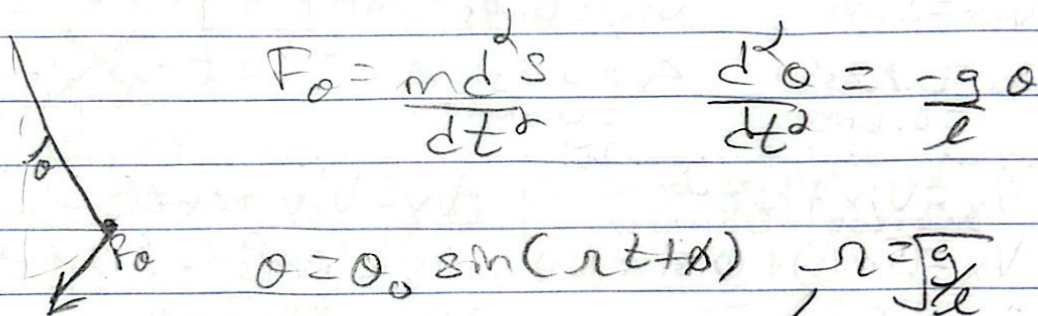 F_θ = md²s/dt²    d²θ/dt² = -g/l θ
θ
F_θ
θ = θ₀ sin(Ωt+ϕ), Ω = √(g/l)